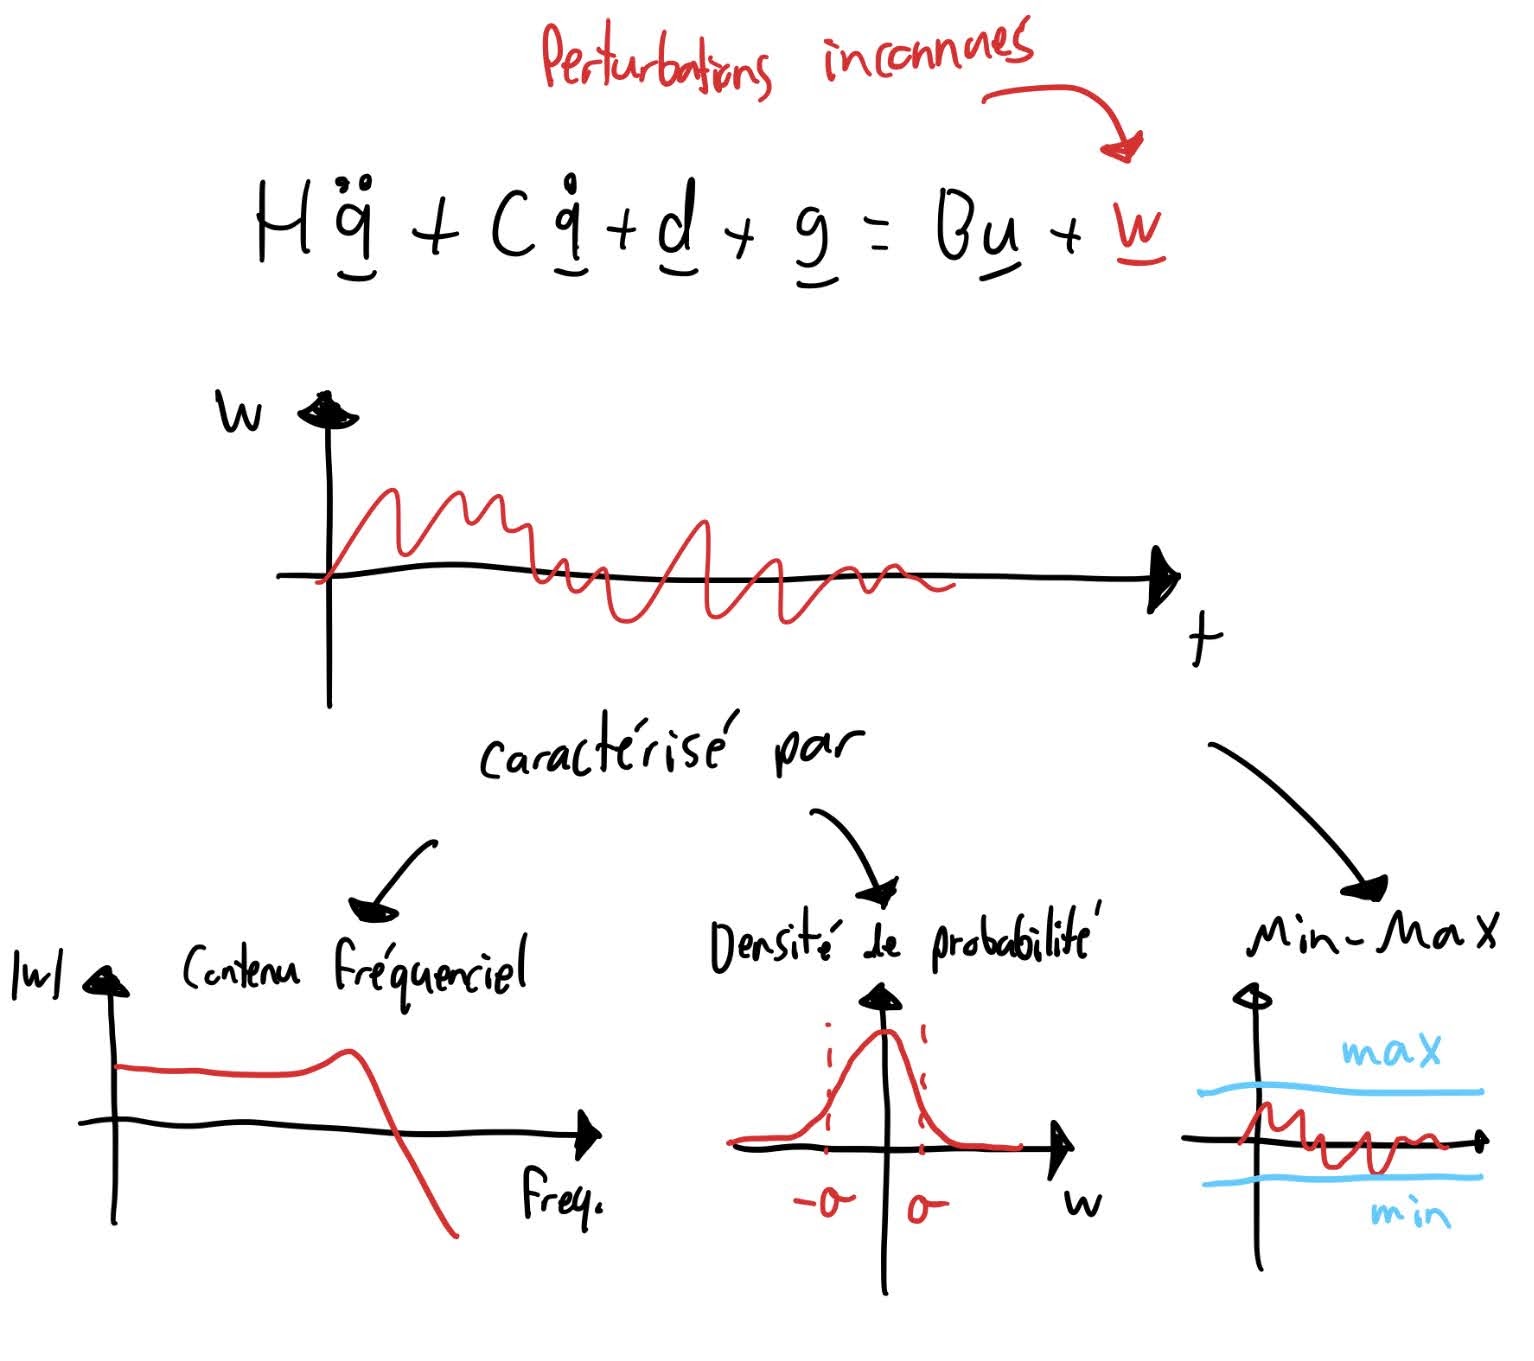 Perturbations inconnues
Hq̈ + Cq̇ + d + g = Bu + w
w
t
caractérisé par
|w| Contenu fréquenciel
Freq.
Densité de probabilité
-σ σ w
Min-Max
max
min